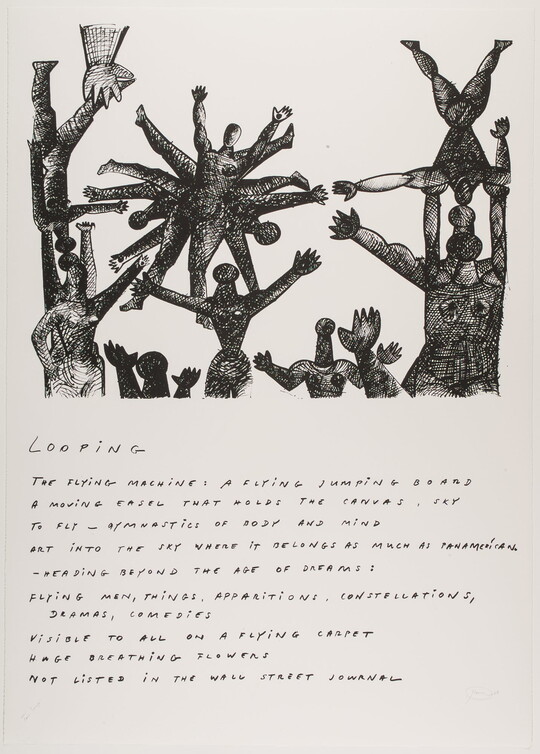 LOOPING
THE FLYING MACHINE: A FLYING JUMPING BOARD
A MOVING EASEL THAT HOLDS THE CANVAS, SKY
TO FLY – GYMNASTICS OF BODY AND MIND
ART INTO THE SKY WHERE IT BELONGS AS MUCH AS PANAMERICAN.
– HEADING BEYOND THE AGE OF DREAMS:
FLYING MEN, THINGS, APPARITIONS, CONSTELLATIONS,
DRAMAS, COMEDIES
VISIBLE TO ALL ON A FLYING CARPET
HUGE BREATHING FLOWERS
NOT LISTED IN THE WALL STREET JOURNAL